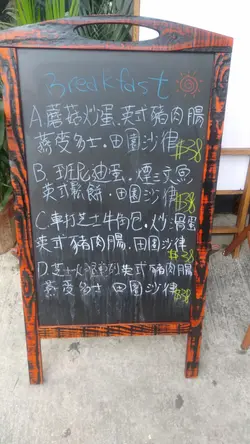 Breakfast
A.蘑菇炒蛋.英式豬肉腸
燕麥多士.田園沙律
$38
B.班尼迪蛋.煙三文魚
英式鬆餅.田園沙律
$38
C.車打芝士牛角包.炒滑蛋
英式豬肉腸.田園沙律
$38
D.芝士 英式豬肉腸
燕麥多士 田園沙律
$38